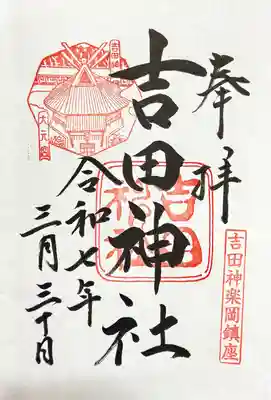 奉拝
吉田神楽岡鎮座
吉田神社
吉田神社
令和七年
三月三十日
吉田神社
大元宮